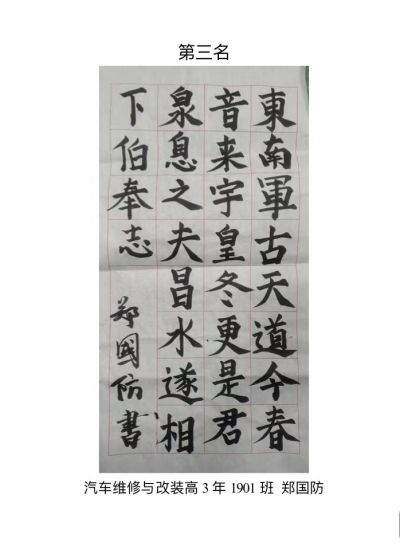 第三名
東南軍古天道今春
音来宇皇冬更是君
泉息之夫昌水遂相
下伯奉志
郑國防書
汽车维修与改装高 3 年 1901 班 郑国防